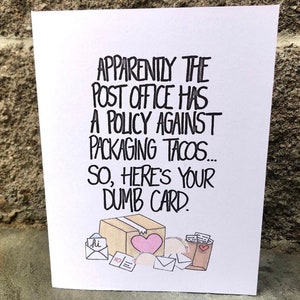 APPARENTLY THE
POST OFFICE HAS
A POLICY AGAINST
PACKAGING TACOS...
SO, HERE'S YOUR
DUMB CARD.
Hi